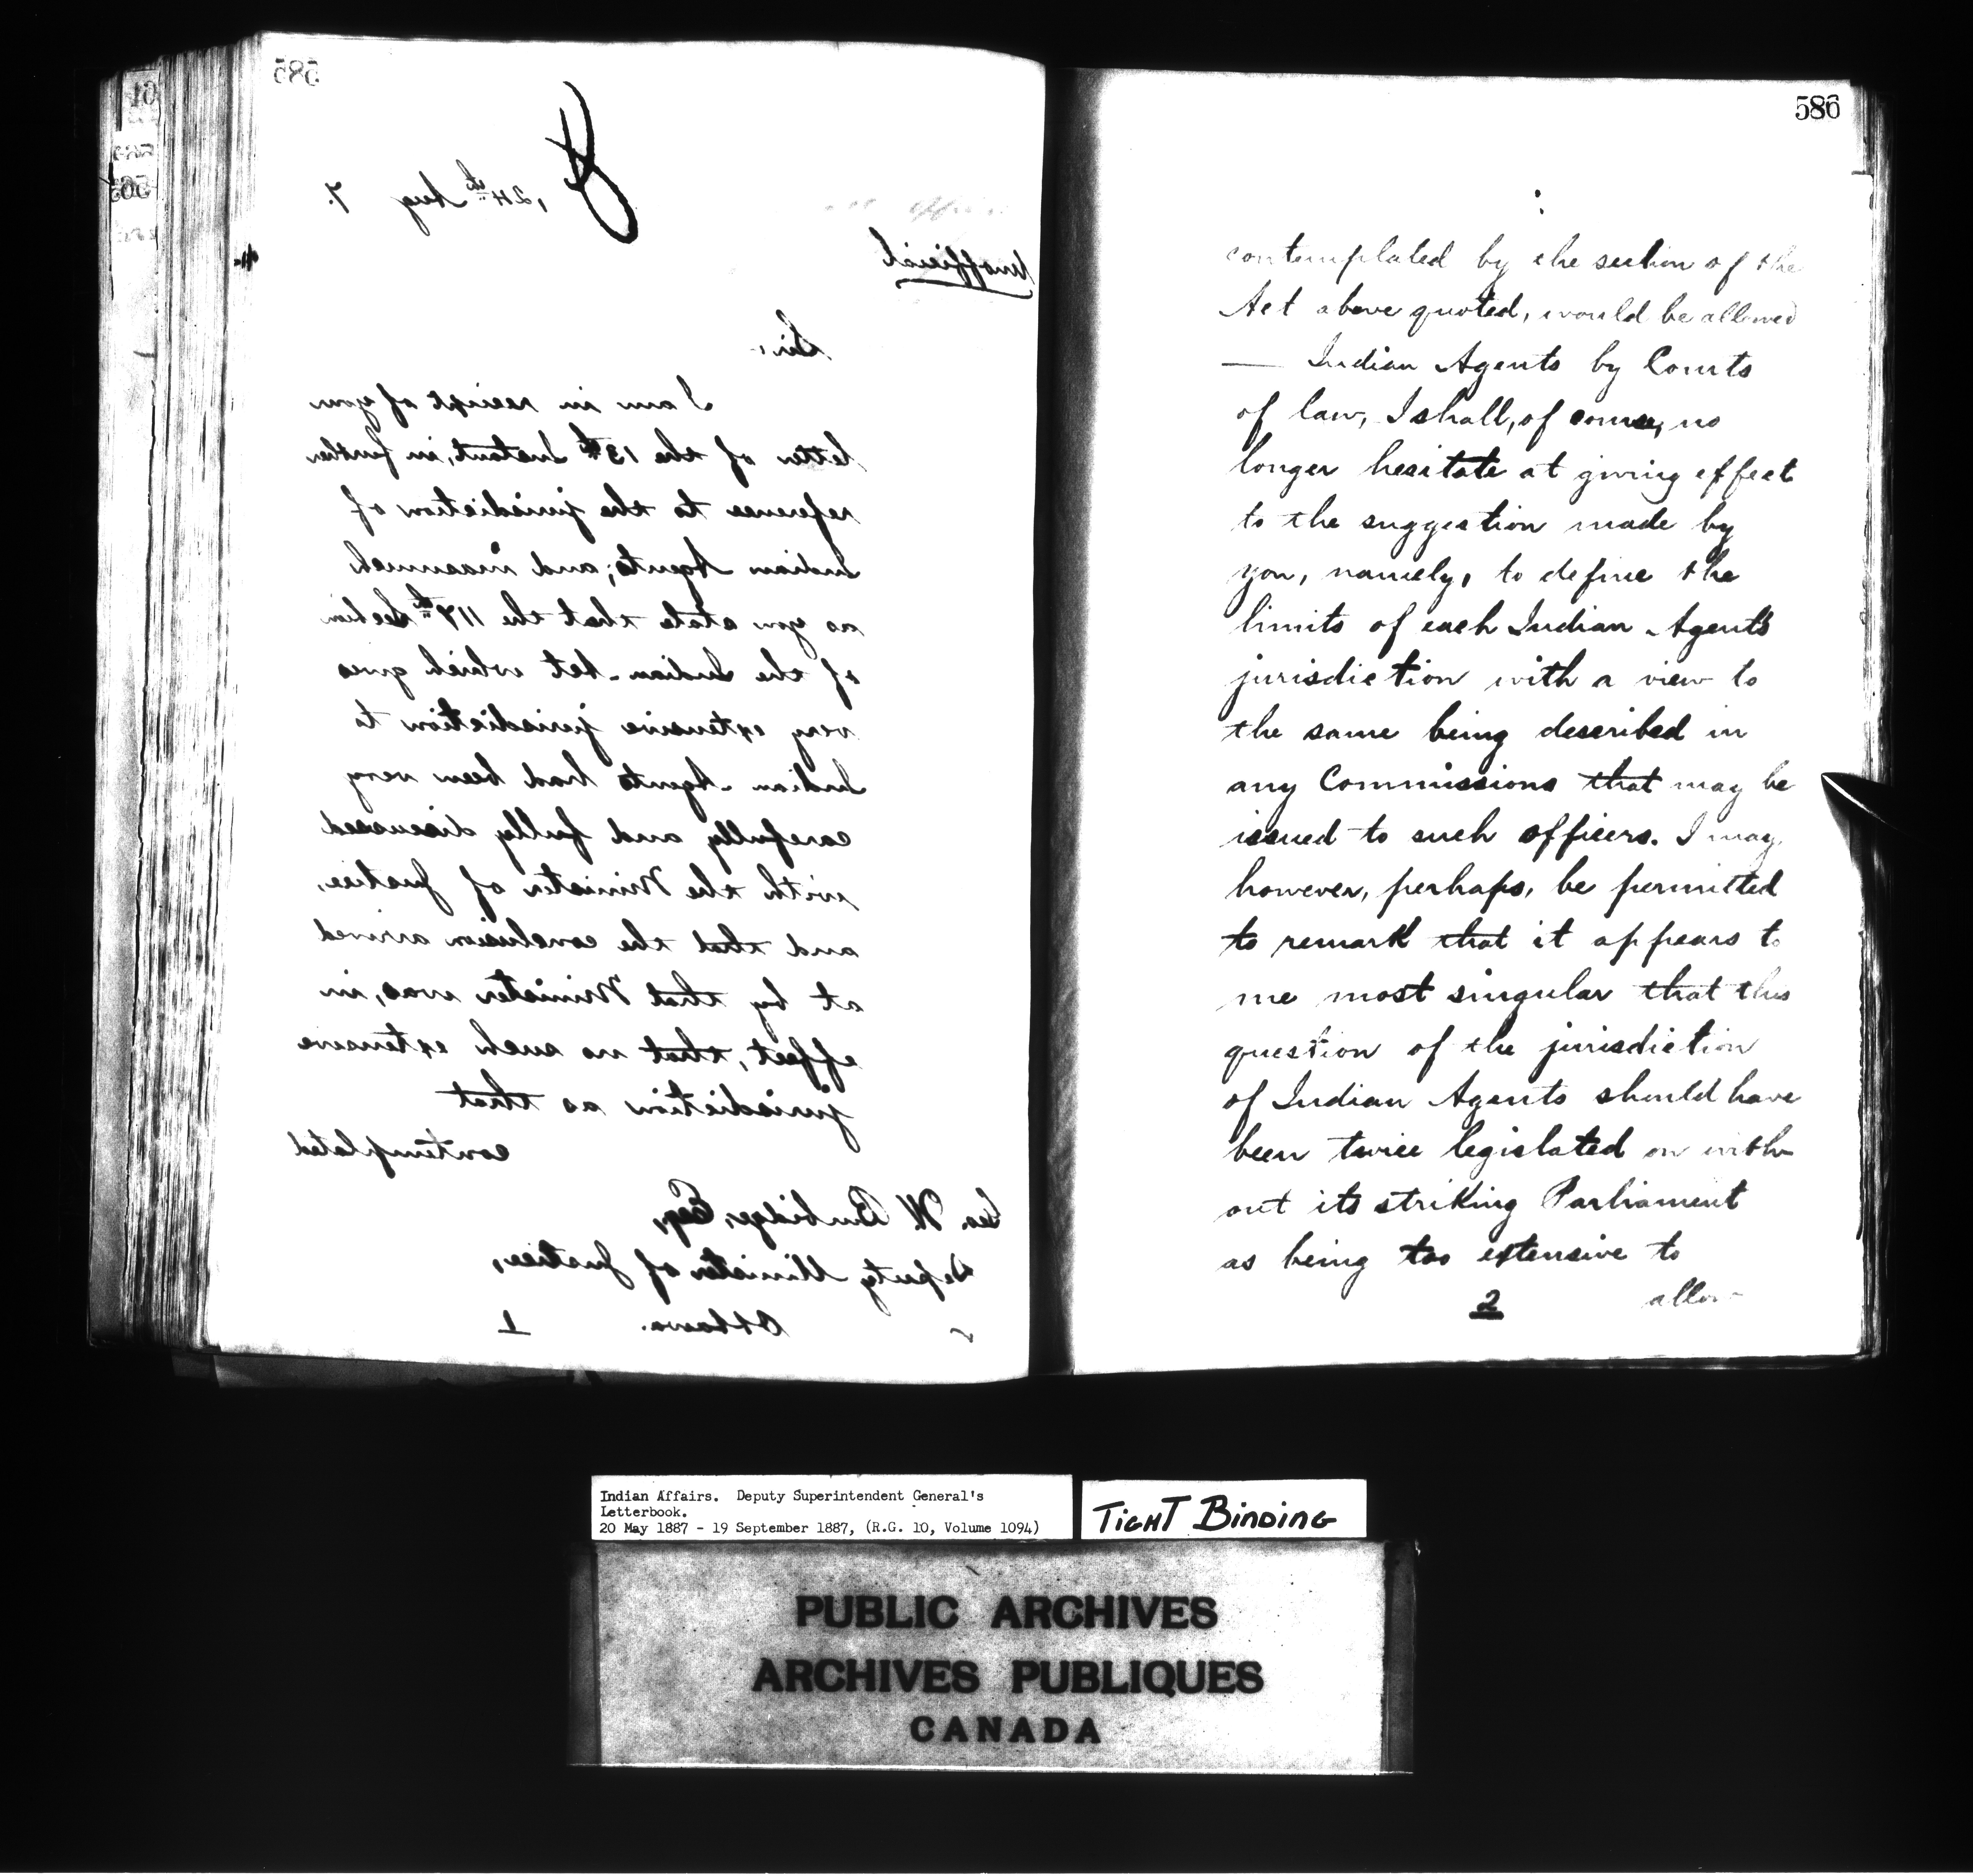 585
, 24th Aug 7.
Unofficial
Sir,
I am in receipt of your
letter of the 13th Instant, in further
reference to the jurisdiction of
Indian Agents; and inasmuch
as you state that the 117th Section
of the Indian Act which gives
very extensive jurisdiction to
Indian Agents had been very
carefully and fully discussed
with the Minister of Justice,
and that the conclusion arrived
at by that Minister was, in
effect, that no such extensive
jurisdiction as that
contemplated
Geo. W. Burbidge, Esq,
Deputy Minister of Justice,
Ottawa.
1
586
contemplated by the section of the
Act above quoted, would be allowed
— Indian Agents by Courts
of law, I shall, of course, no
longer hesitate at giving effect
to the suggestion made by
you, namely, to define the
limits of each Indian Agent's
jurisdiction with a view to
the same being described in
any Commissions that may be
issued to such officers. I may,
however, perhaps, be permitted
to remark that it appears to
me most singular that this
question of the jurisdiction
of Indian Agents should have
been twice legislated on with-
out its striking Parliament
as being too extensive to
2
allow
Indian Affairs. Deputy Superintendent General's
Letterbook.
20 May 1887 - 19 September 1887, (R.G. 10, Volume 1094)
TIGHT BINDING
PUBLIC ARCHIVES
ARCHIVES PUBLIQUES
CANADA